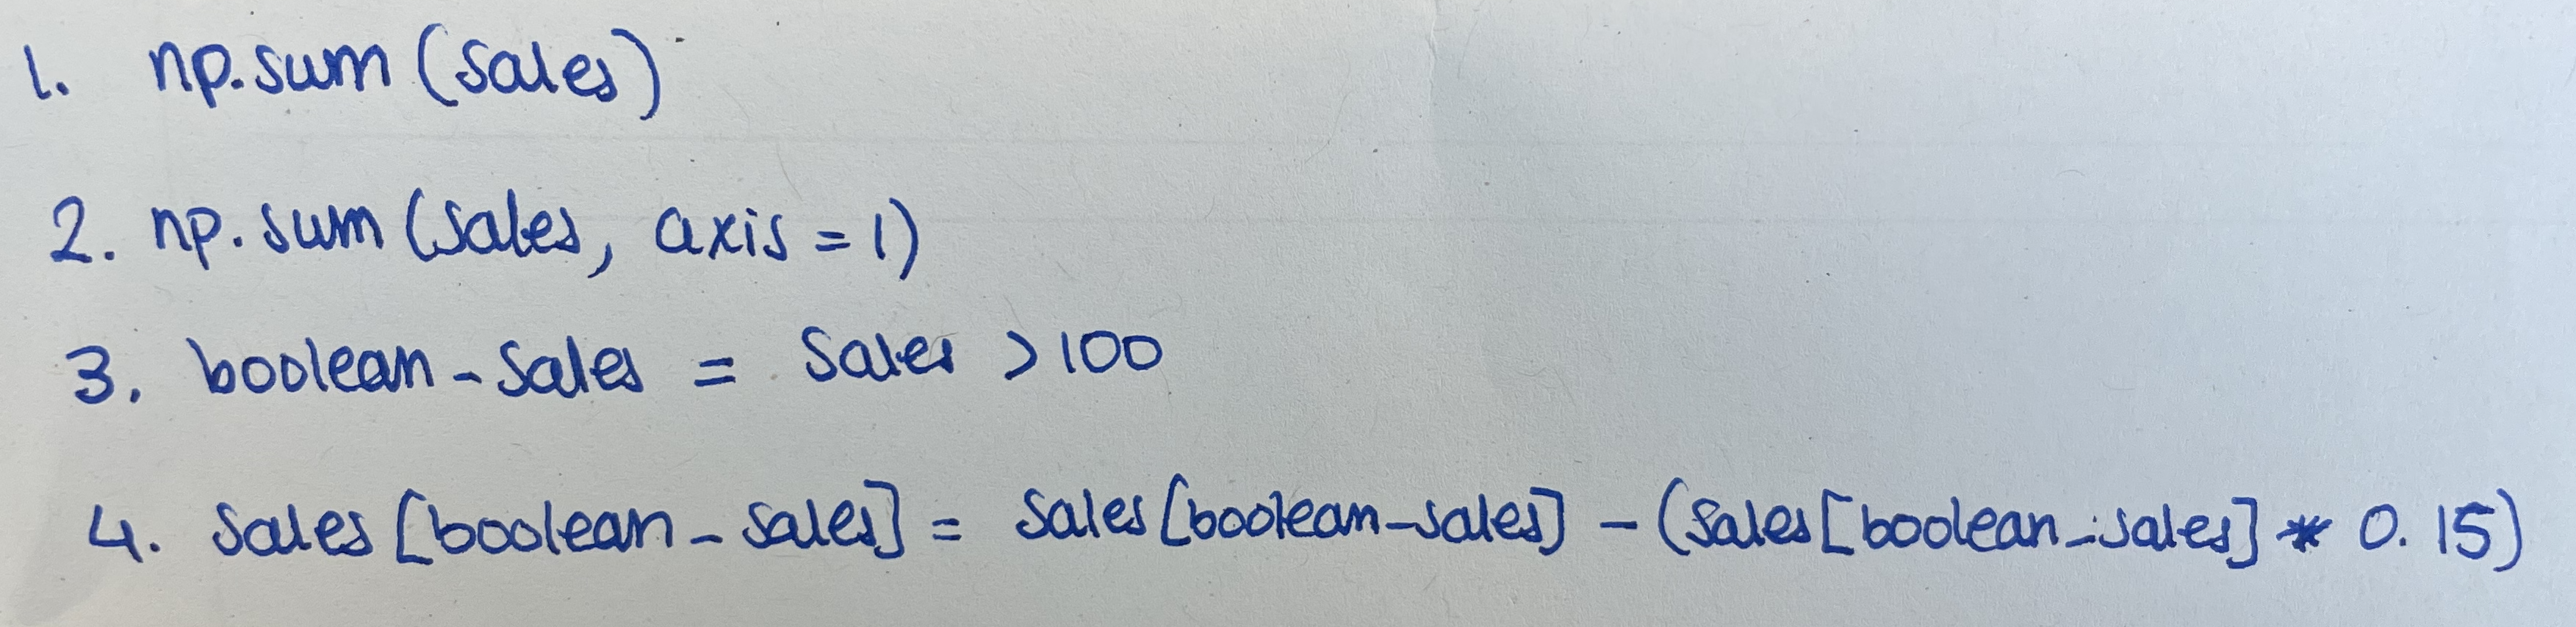 1. np.sum(sales)
2. np.sum(sales, axis=1)
3. boolean_sales = sales > 100
4. sales[boolean_sales] = sales[boolean_sales] - (sales[boolean_sales] * 0.15)